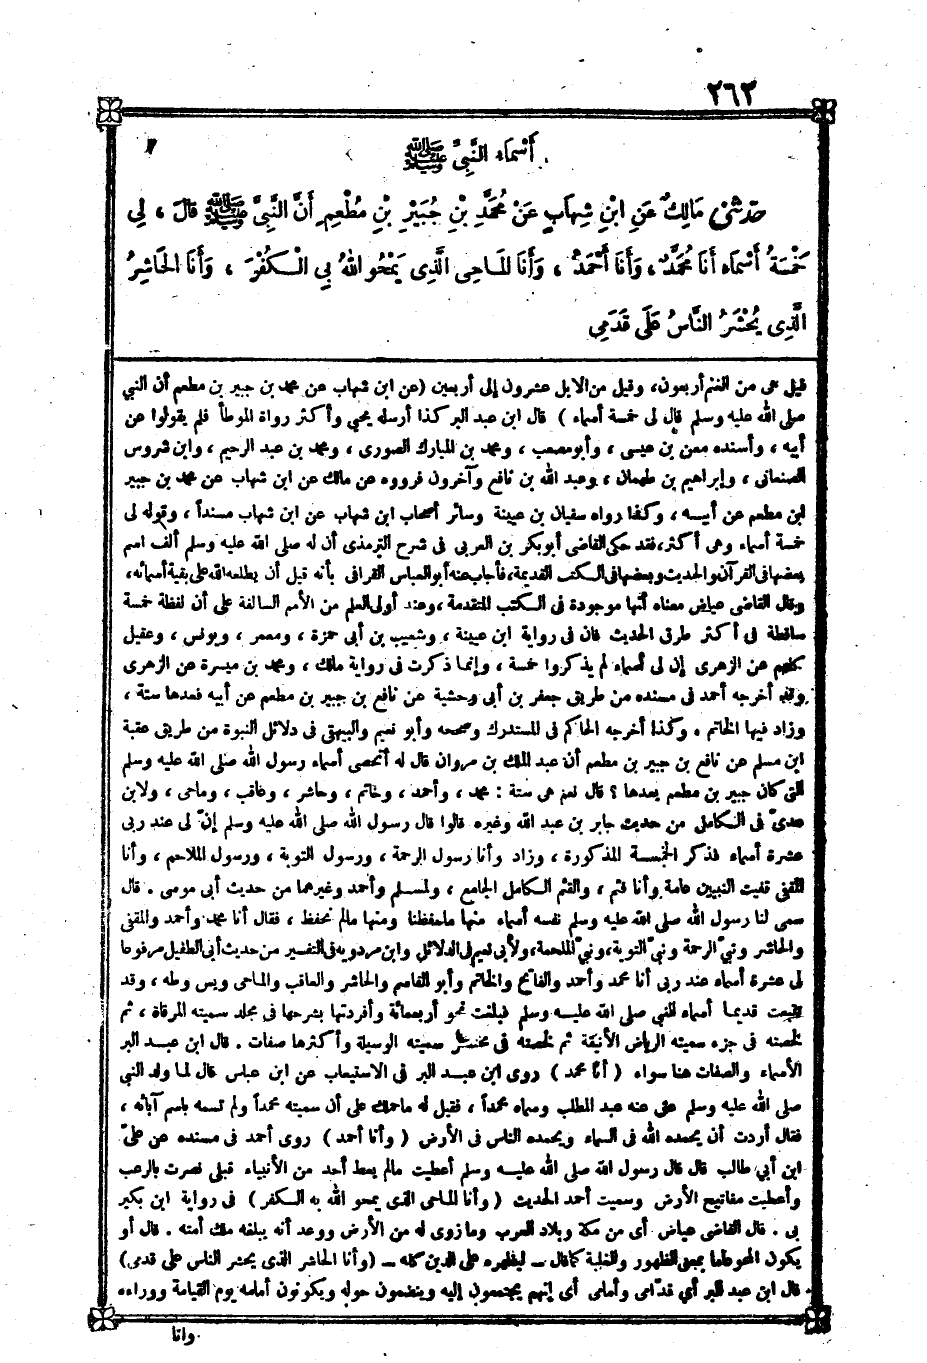 ٢٦٢
أَسْمَاء النَّبِيِّ ﷺ
حَدَّثَنِي مَالِكٌ عَنِ ابْنِ شِهَابٍ عَنْ مُحَمَّدِ بْنِ جُبَيْرِ بْنِ مُطْعِمٍ أَنَّ النَّبِيَّ ﷺ قَالَ ، لِي
خَمْسَةُ أَسْمَاء أَنَا مُحَمَّدٌ ، وَأَنَا أَحْمَدُ ، وَأَنَا الْمَاحِي الَّذِي يَمْحُو اللهُ بِيَ الْكُفْرَ ، وَأَنَا الْحَاشِرُ
الَّذِي يُحْشَرُ النَّاسُ عَلَى قَدَمِي
قيل هى من الغنم أربعون، وقيل من الابل عشرون إلى أربعين (عن ابن شهاب عن محمد بن جبير بن مطعم أن النبي
صلى الله عليه وسلم قال لى خمسة أسماء ) قال ابن عبد البر كذا أرسله يحيى وأكثر رواة الموطأ فلم يقولوا عن
أبيه ، وأسنده معن بن عيسى ، وأبو مصعب ، ومحمد بن المبارك الصورى ، ومحمد بن عبد الرحيم ، وابن شروس
الصنعانى ، وإبراهيم بن طهمان ، وعبد الله بن نافع وآخرون فرووه عن مالك عن ابن شهاب عن محمد بن جبير
ابن مطعم عن أبيه ، وكذا رواه سفيان بن عيينة وسائر أصحاب ابن شهاب عن ابن شهاب مسنداً ، وقوله لى
خمسة أسماء وهى أكثر، فقد حكى القاضى أبو بكر بن العربى فى شرح الترمذى أن له صلى الله عليه وسلم ألف اسم
بعضها فى القرآن والحديث وبعضها فى الكتب القديمة، فأجاب عنه أبو العباس القرافى بأنه قيل أن يطلعه الله على بقية أسمائه،
وقال القاضى عياض معناه أنها موجودة فى الكتب المتقدمة ، وعند أولى العلم من الأمم السالفة على أن لفظة خمسة
ساقطة فى أكثر طرق الحديث فان فى رواية ابن عيينة ، وشعيب بن أبى حمزة ، ومعمر ، ويونس ، وعقيل
كلهم عن الزهرى إن لى أسماء لم يذكروا خمسة ، وإنما ذكرت فى رواية مالك ، ومحمد بن ميسرة عن الزهرى
وقد أخرجه أحمد فى مسنده من طريق جعفر بن أبى وحشية عن نافع بن جبير بن مطعم عن أبيه فعدها ستة ،
وزاد فيها الخاتم ، وكذا أخرجه الحاكم فى المستدرك وصححه وأبو نعيم والبيهقى فى دلائل النبوة من طريق عقبة
ابن مسلم عن نافع بن جبير بن مطعم أن عبد الملك بن مروان قال له أتحصى أسماء رسول الله صلى الله عليه وسلم
التى كان جبير بن مطعم يعدها ؟ قال نعم هى ستة : محمد ، وأحمد ، وخاتم ، وحاشر ، وعاقب ، وماحى ، ولابن
عدىّ فى الكامل من حديث جابر بن عبد الله وغيره قالوا قال رسول الله صلى الله عليه وسلم إنّ لى عند ربى
عشرة أسماء فذكر الخمسة المذكورة ، وزاد وأنا رسول الرحمة ، ورسول التوبة ، ورسول الملاحم ، وأنا
المقفى قفيت النبيين عامة وأنا قثم ، والقثم الكامل الجامع ، ولمسلم وأحمد وغيرهما من حديث أبى موسى . قال
سمى لنا رسول الله صلى الله عليه وسلم نفسه أسماء منها ما حفظنا ومنها مالم نحفظ ، فقال أنا محمد وأحمد والمقفى
والحاشر ونبىّ الرحمة ونبىّ التوبة، ونبىّ الملحمة، ولأبى نعيم فى الدلائل وابن مردويه فى التفسير من حديث أبى الطفيل مرفوعا
لى عشرة أسماء عند ربى أنا محمد وأحمد والفاتح والخاتم وأبو القاسم والحاشر والعاقب والماحى ويس وطه ، وقد
تتبعت قديما أسماء النبى صلى الله عليه وسلم فبلغت نحو أربعمائة وأفردتها بشرحها فى مجلد سميته المرقاة ، ثم
لخصته فى جزء سميته الرياض الأنيقة ثم لخصته فى مختصر سميته الوسيلة وأكثرها صفات . قال ابن عبد البر
الأسماء والصفات هنا سواء ( أنا محمد ) روى ابن عبد البر فى الاستيعاب عن ابن عباس قال لما ولد النبي
صلى الله عليه وسلم عق عنه عبد المطلب وسماه محمداً ، فقيل له ما حملك على أن سميته محمداً ولم تسمه باسم آبائه ،
فقال أردت أن يحمده الله فى السماء ويحمده الناس فى الأرض ( وأنا أحمد ) روى أحمد فى مسنده عن علىّ
ابن أبى طالب قال قال رسول الله صلى الله عليه وسلم أعطيت مالم يعط أحد من الأنبياء قبلى نصرت بالرعب
وأعطيت مفاتيح الأرض وسميت أحمد الحديث ( وأنا الماحى الذى يمحو الله به الكفر ) فى رواية ابن بكير
بى . قال القاضى عياض أى من مكة وبلاد العرب وما زوى له من الأرض ووعد أنه يبلغه ملك أمته . قال أو
يكون المحو عاما بمعنى الظهور والغلبة كما قال ــ ليظهره على الدين كله ــ (وأنا الحاشر الذى يحشر الناس على قدمى)
قال ابن عبد البر أى قدّامى وأمامى أى إنهم يجتمعون إليه وينضمون حوله ويكونون أمامه يوم القيامة ووراءه
وانا